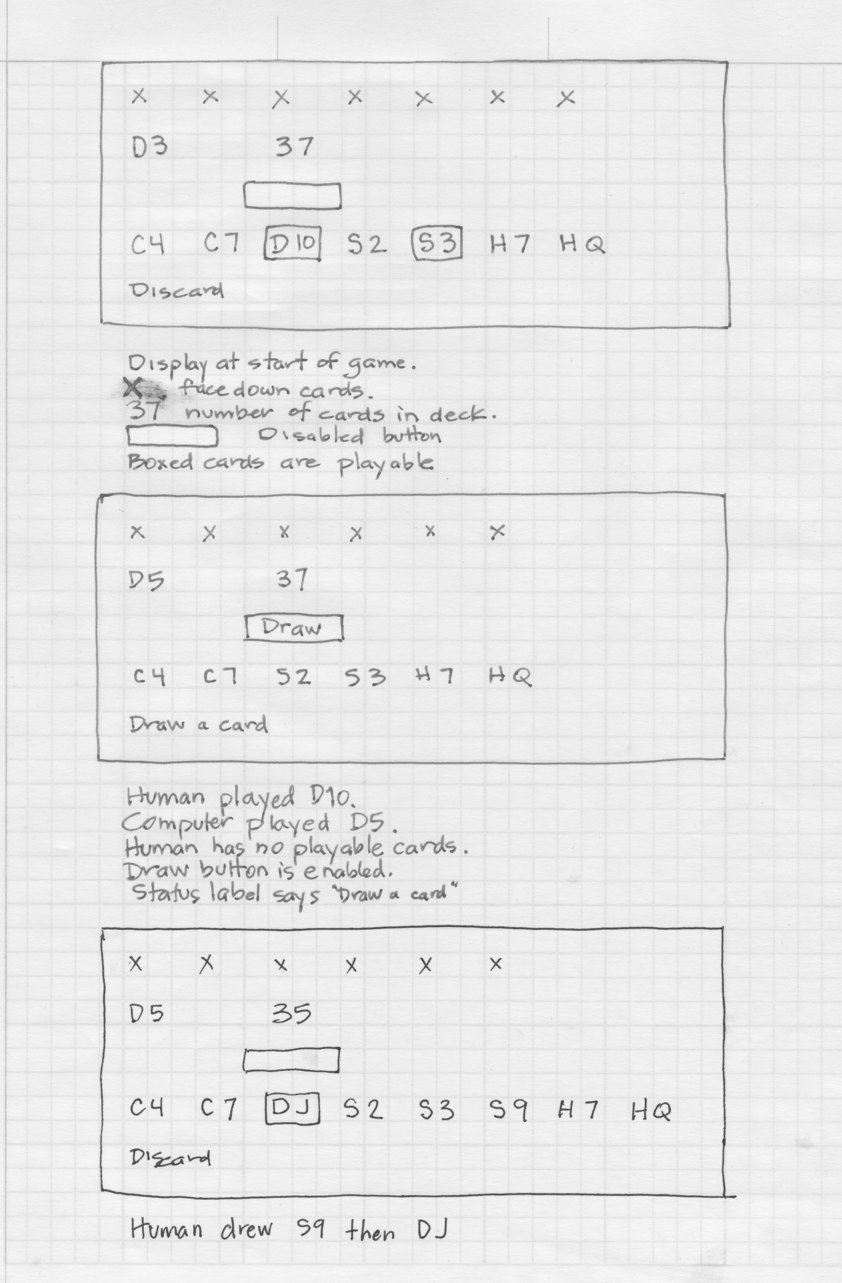 X X X X X X X
D3 37
C4 C7 D10 S2 S3 H7 HQ
Discard
Display at start of game.
X face down cards.
37 number of cards in deck.
Disabled button
Boxed cards are playable
X X X X X X
D5 37
Draw
C4 C7 S2 S3 H7 HQ
Draw a card
Human played D10.
Computer played D5.
Human has no playable cards.
Draw button is enabled.
Status label says "Draw a card"
X X X X X X
D5 35
C4 C7 DJ S2 S3 S9 H7 HQ
Discard
Human drew S9 then DJ